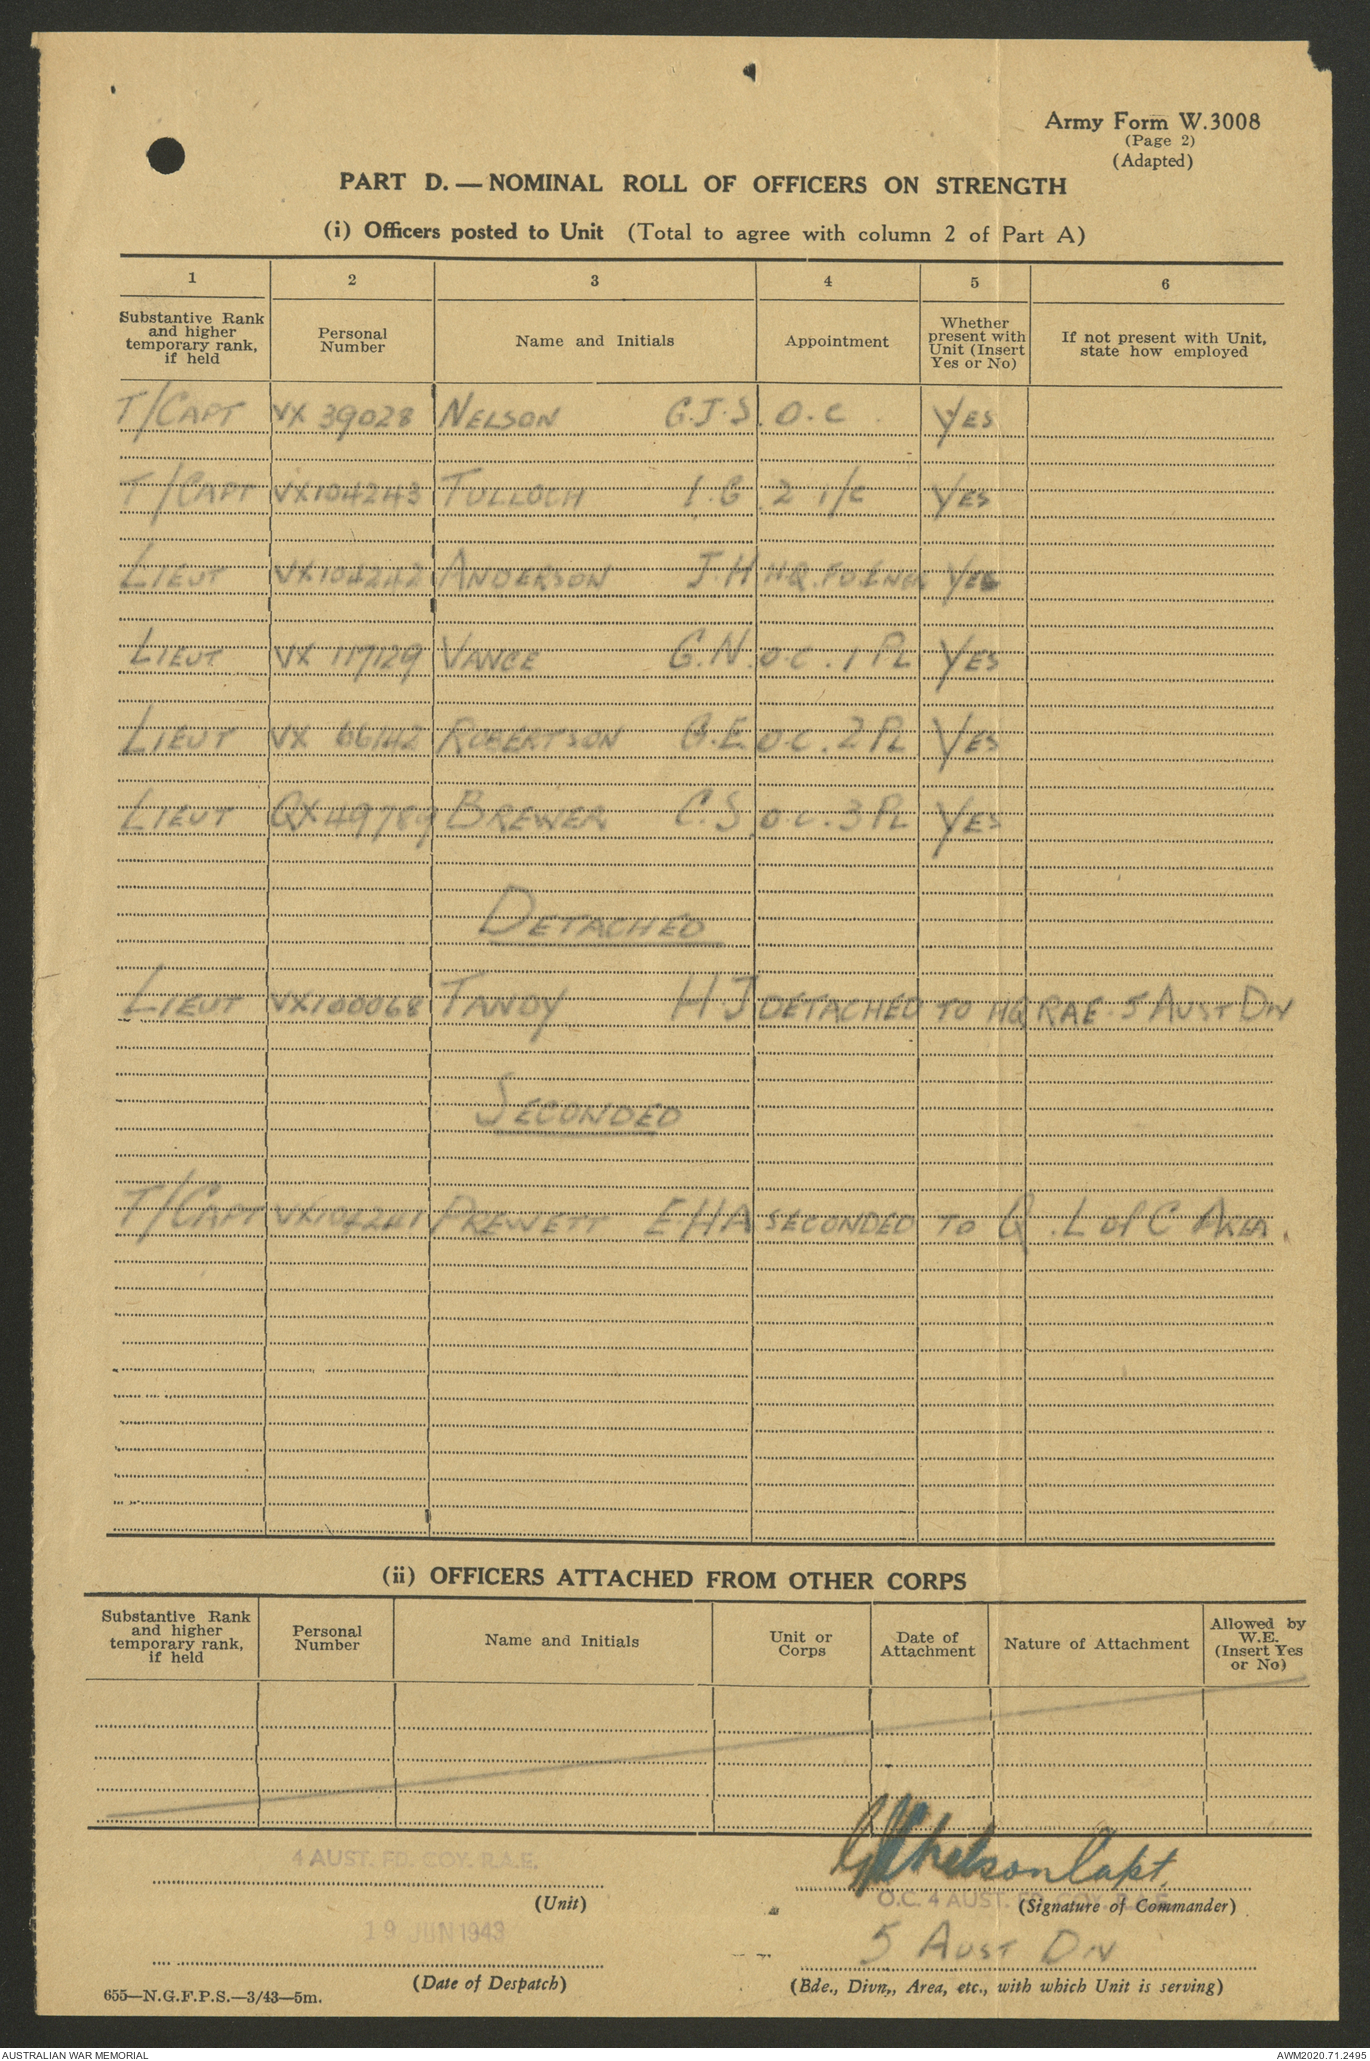 Army Form W.3008
(Page 2)
(Adapted)
PART D. — NOMINAL ROLL OF OFFICERS ON STRENGTH
(i) Officers posted to Unit (Total to agree with column 2 of Part A)
1 2 3 4 5 6
Substantive Rank and higher temporary rank, if held Personal Number Name and Initials Appointment Whether present with Unit (Insert Yes or No) If not present with Unit, state how employed
T/CAPT VX 39028 NELSON G.J.S. O.C Yes
T/CAPT VX104243 TULLOCH I.G 2 i/c Yes
LIEUT VX104242 ANDERSON J.H HQ.FD.ENGR Yes
LIEUT VX 117129 VANCE G.N. O.C. 1 PL Yes
LIEUT VX 66142 ROBERTSON G.E. O.C. 2 PL Yes
LIEUT QX49789 BREWER C.S. O.C. 3 PL Yes
DETACHED
LIEUT VX100068 TANDY H J DETACHED TO HQ RAE. 5 AUST DIV
SECONDED
T/CAPT VX104241 PREWETT E.H.A SECONDED TO Q. L of C AREA.
(ii) OFFICERS ATTACHED FROM OTHER CORPS
Substantive Rank and higher temporary rank, if held Personal Number Name and Initials Unit or Corps Date of Attachment Nature of Attachment Allowed by W.E. (Insert Yes or No)
4 AUST. FD. COY. R.A.E.
(Unit)
GJSNelson Capt.
O.C. 4 AUST. FD. COY. R.A.E.
(Signature of Commander)
19 JUN 1943
(Date of Despatch)
5 AUST DIV
(Bde., Divn., Area, etc., with which Unit is serving)
655—N.G.F.P.S.—3/43—5m.
AUSTRALIAN WAR MEMORIAL
AWM2020.71.2495